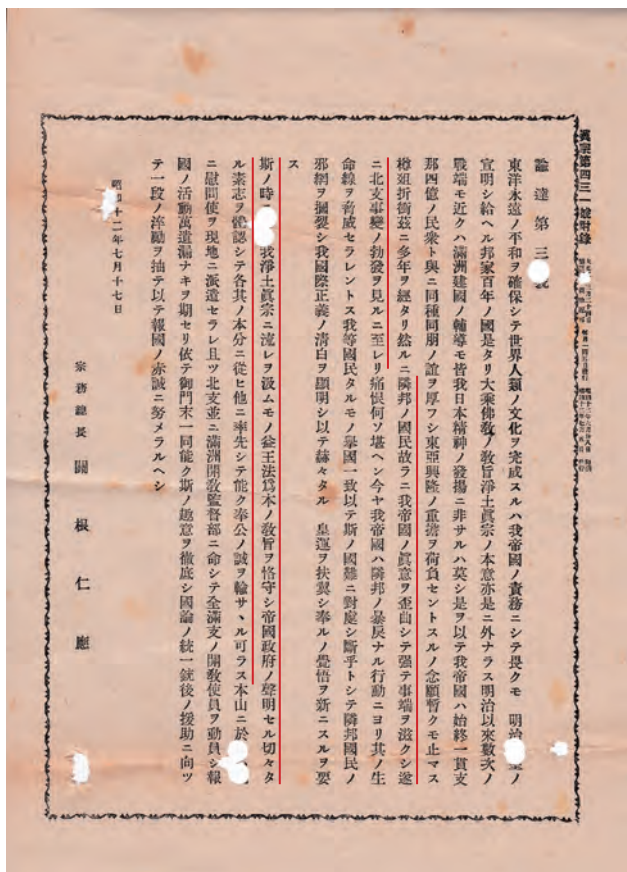 眞宗第四三一號附錄
諭達第三
東洋永遠ノ平和ヲ確保シテ世界人類ノ文化ヲ完成スルハ我帝國ノ責務ニシテ畏クモ 明治 ノ
宣明シ給ヘル邦家百年ノ國是タリ大乘佛敎ノ敎旨淨土眞宗ノ本意亦是ニ外ナラス明治以來數次ノ
戰端モ近クハ滿洲建國ノ輔導モ皆我日本精神ノ發揚ニ非サルハ莫シ是ヲ以テ我帝國ハ始終一貫支
那四億ノ民衆ト與ニ同種同朋ノ誼ヲ厚フシ東亞興隆ノ重擔ヲ荷負セントスルノ念願暫クモ止マス
樽俎折衝茲ニ多年ヲ經タリ然ルニ隣邦ノ國民故ラニ我帝國ノ眞意ヲ歪曲シテ强テ事端ヲ滋クシ遂
ニ北支事變ノ勃發ヲ見ルニ至レリ痛恨何ソ堪ヘン今ヤ我帝國ハ隣邦ノ暴戾ナル行動ニヨリ其ノ生
命線ヲ脅威セラレントス我等國民タルモノ擧國一致以テ斯ノ國難ニ對處シ斷乎トシテ隣邦國民ノ
邪網ヲ摑裂シ我國際正義ノ淸白ヲ顯明シ以テ赫々タル 皇運ヲ扶翼シ奉ルノ覺悟ヲ新ニスルヲ要
ス
斯ノ時 我淨土眞宗ニ流レヲ汲ムモノ益王法爲本ノ敎旨ヲ恪守シ帝國政府ノ聲明セル切々タ
ル素志ヲ 認シテ各其ノ本分ニ從ヒ他ニ率先シテ能ク奉公ノ誠ヲ輸サヽル可ラス本山ニ於
ニ慰問使ヲ現地ニ派遣セラレ且ツ北支並ニ滿洲開敎監督部ニ命シテ全滿支ノ開敎使員ヲ動員シ報
國ノ活動萬遺漏ナキヲ期セリ依テ御門末一同能ク斯ノ趣意ヲ徹底シ國論ノ統一銃後ノ援助ニ向ツ
テ一段ノ淬勵ヲ抽テ以テ報國ノ赤誠ニ努メラルヘシ
昭 十二年七月十七日
宗務總長 關根仁應